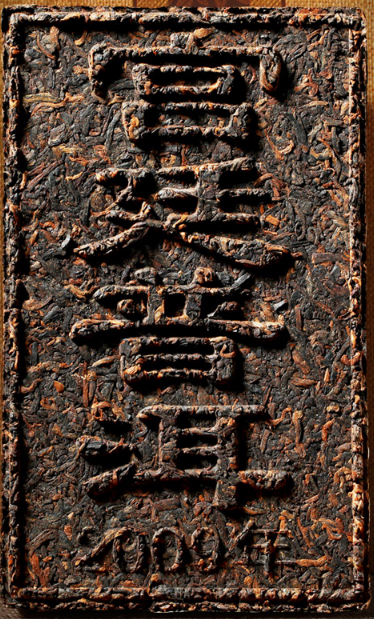 宫廷普洱
2009年